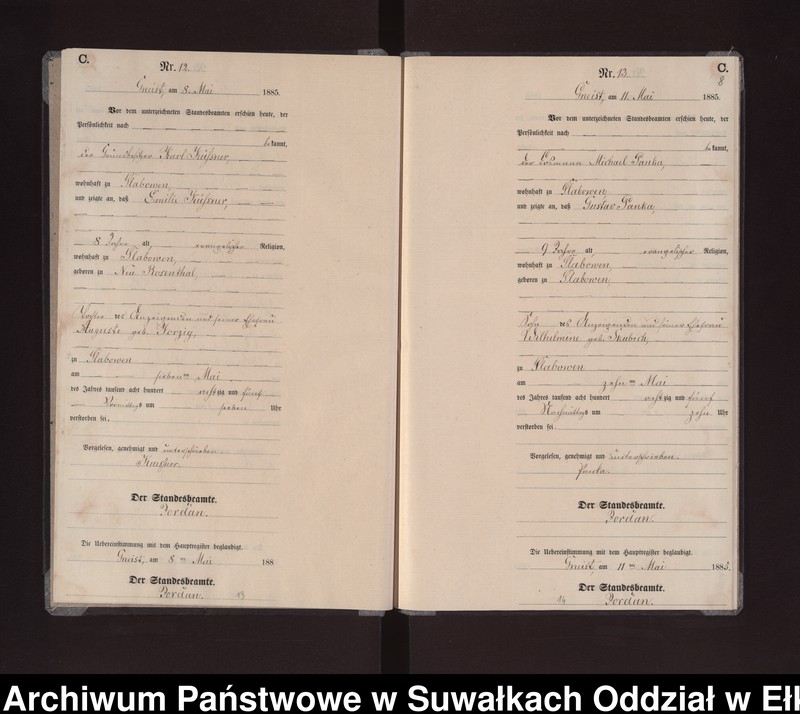 C.
Nr. 12.
Gneist, am 8. Mai 1885.
Vor dem unterzeichneten Standesbeamten erschien heute, der
Persönlichkeit nach
bekannt,
der Grundbesitzer Karl
wohnhaft zu Slabowen,
und zeigte an, daß Emilie
8 Jahre alt, evangelischer Religion,
wohnhaft zu Slabowen,
geboren zu Neu Rosenthal,
Tochter des Anzeigenden und seiner Ehefrau
Auguste geb.
zu Slabowen
am sieben ten Mai
des Jahres tausend acht hundert achtzig und fünf
Vormittags um sieben Uhr
verstorben sei.
Vorgelesen, genehmigt und unterschrieben.
Der Standesbeamte.
Jordan.
Die Uebereinstimmung mit dem Hauptregister beglaubigt.
Gneist, am 8 ten Mai 188
Der Standesbeamte.
Jordan.
13
C.
8
Nr. 13.
Gneist, am 11. Mai 1885.
Vor dem unterzeichneten Standesbeamten erschien heute, der
Persönlichkeit nach
bekannt,
der Losmann Michael Panka,
wohnhaft zu Slabowen,
und zeigte an, daß Gustav Panka,
9 Jahre alt evangelischer Religion,
wohnhaft zu Slabowen,
geboren zu Slabowen,
Sohn des Anzeigenden und seiner Ehefrau
Wilhelmine geb.
zu Slabowen
am zehn ten Mai
des Jahres tausend acht hundert achtzig und fünf
Nachmittags um zehn Uhr
verstorben sei.
Vorgelesen, genehmigt und unterschrieben.
Panka.
Der Standesbeamte.
Jordan.
Die Uebereinstimmung mit dem Hauptregister beglaubigt.
Gneist, am 11 ten Mai 1885.
Der Standesbeamte.
14 Jordan.
Archiwum Państwowe w Suwałkach Oddział w Ełk